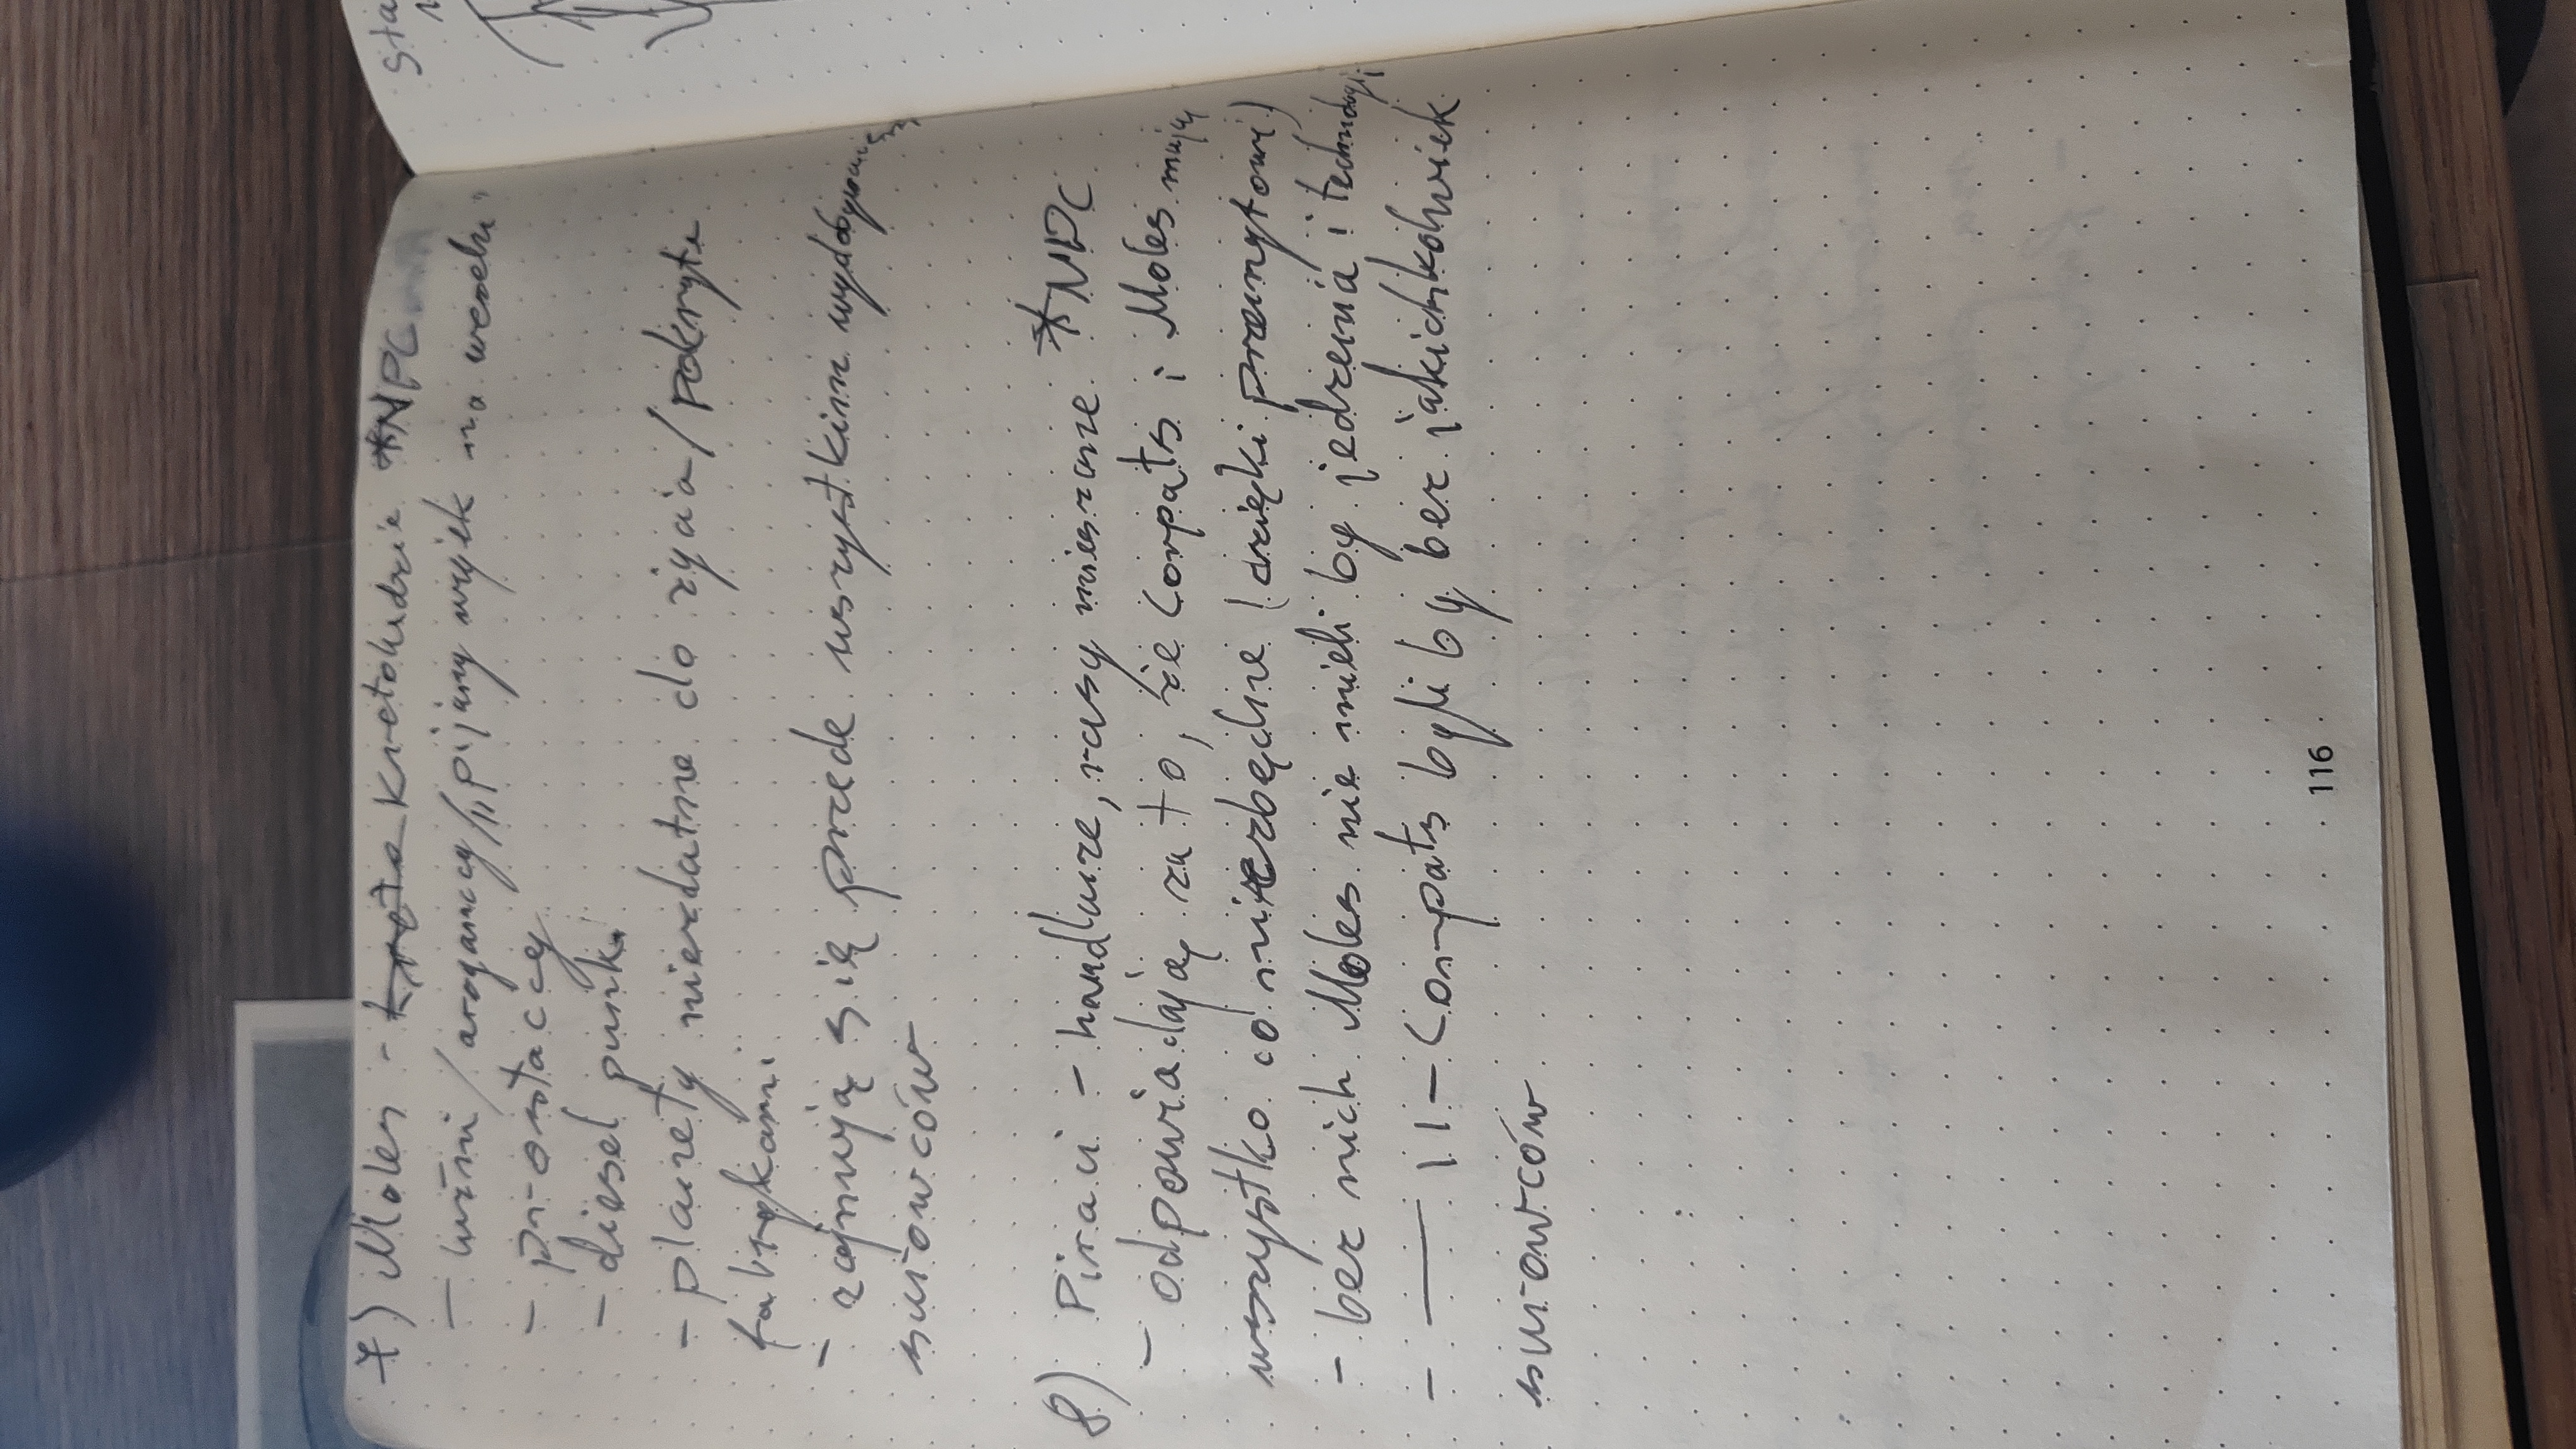 7) Moles - kreto kretoludzie *NPC
- luźni / aroganccy / "pijany wujek na weselu"
- prostaccy
- diesel punk
- planety niezdatne do życia / pokryte
fabrykami
- zajmują się przede wszystkim wydobywaniem
surowców
8) Piraci - handlarze, rasy mieszane *NPC
- odpowiadają za to, że Corpats i Moles mają
wszystko co niezbędne (dzięki przemytowi)
- bez nich Moles nie mieli by jedzenia i technologii
- —— 11 — Corpats byli by bez jakichkolwiek
surowców
116
sta